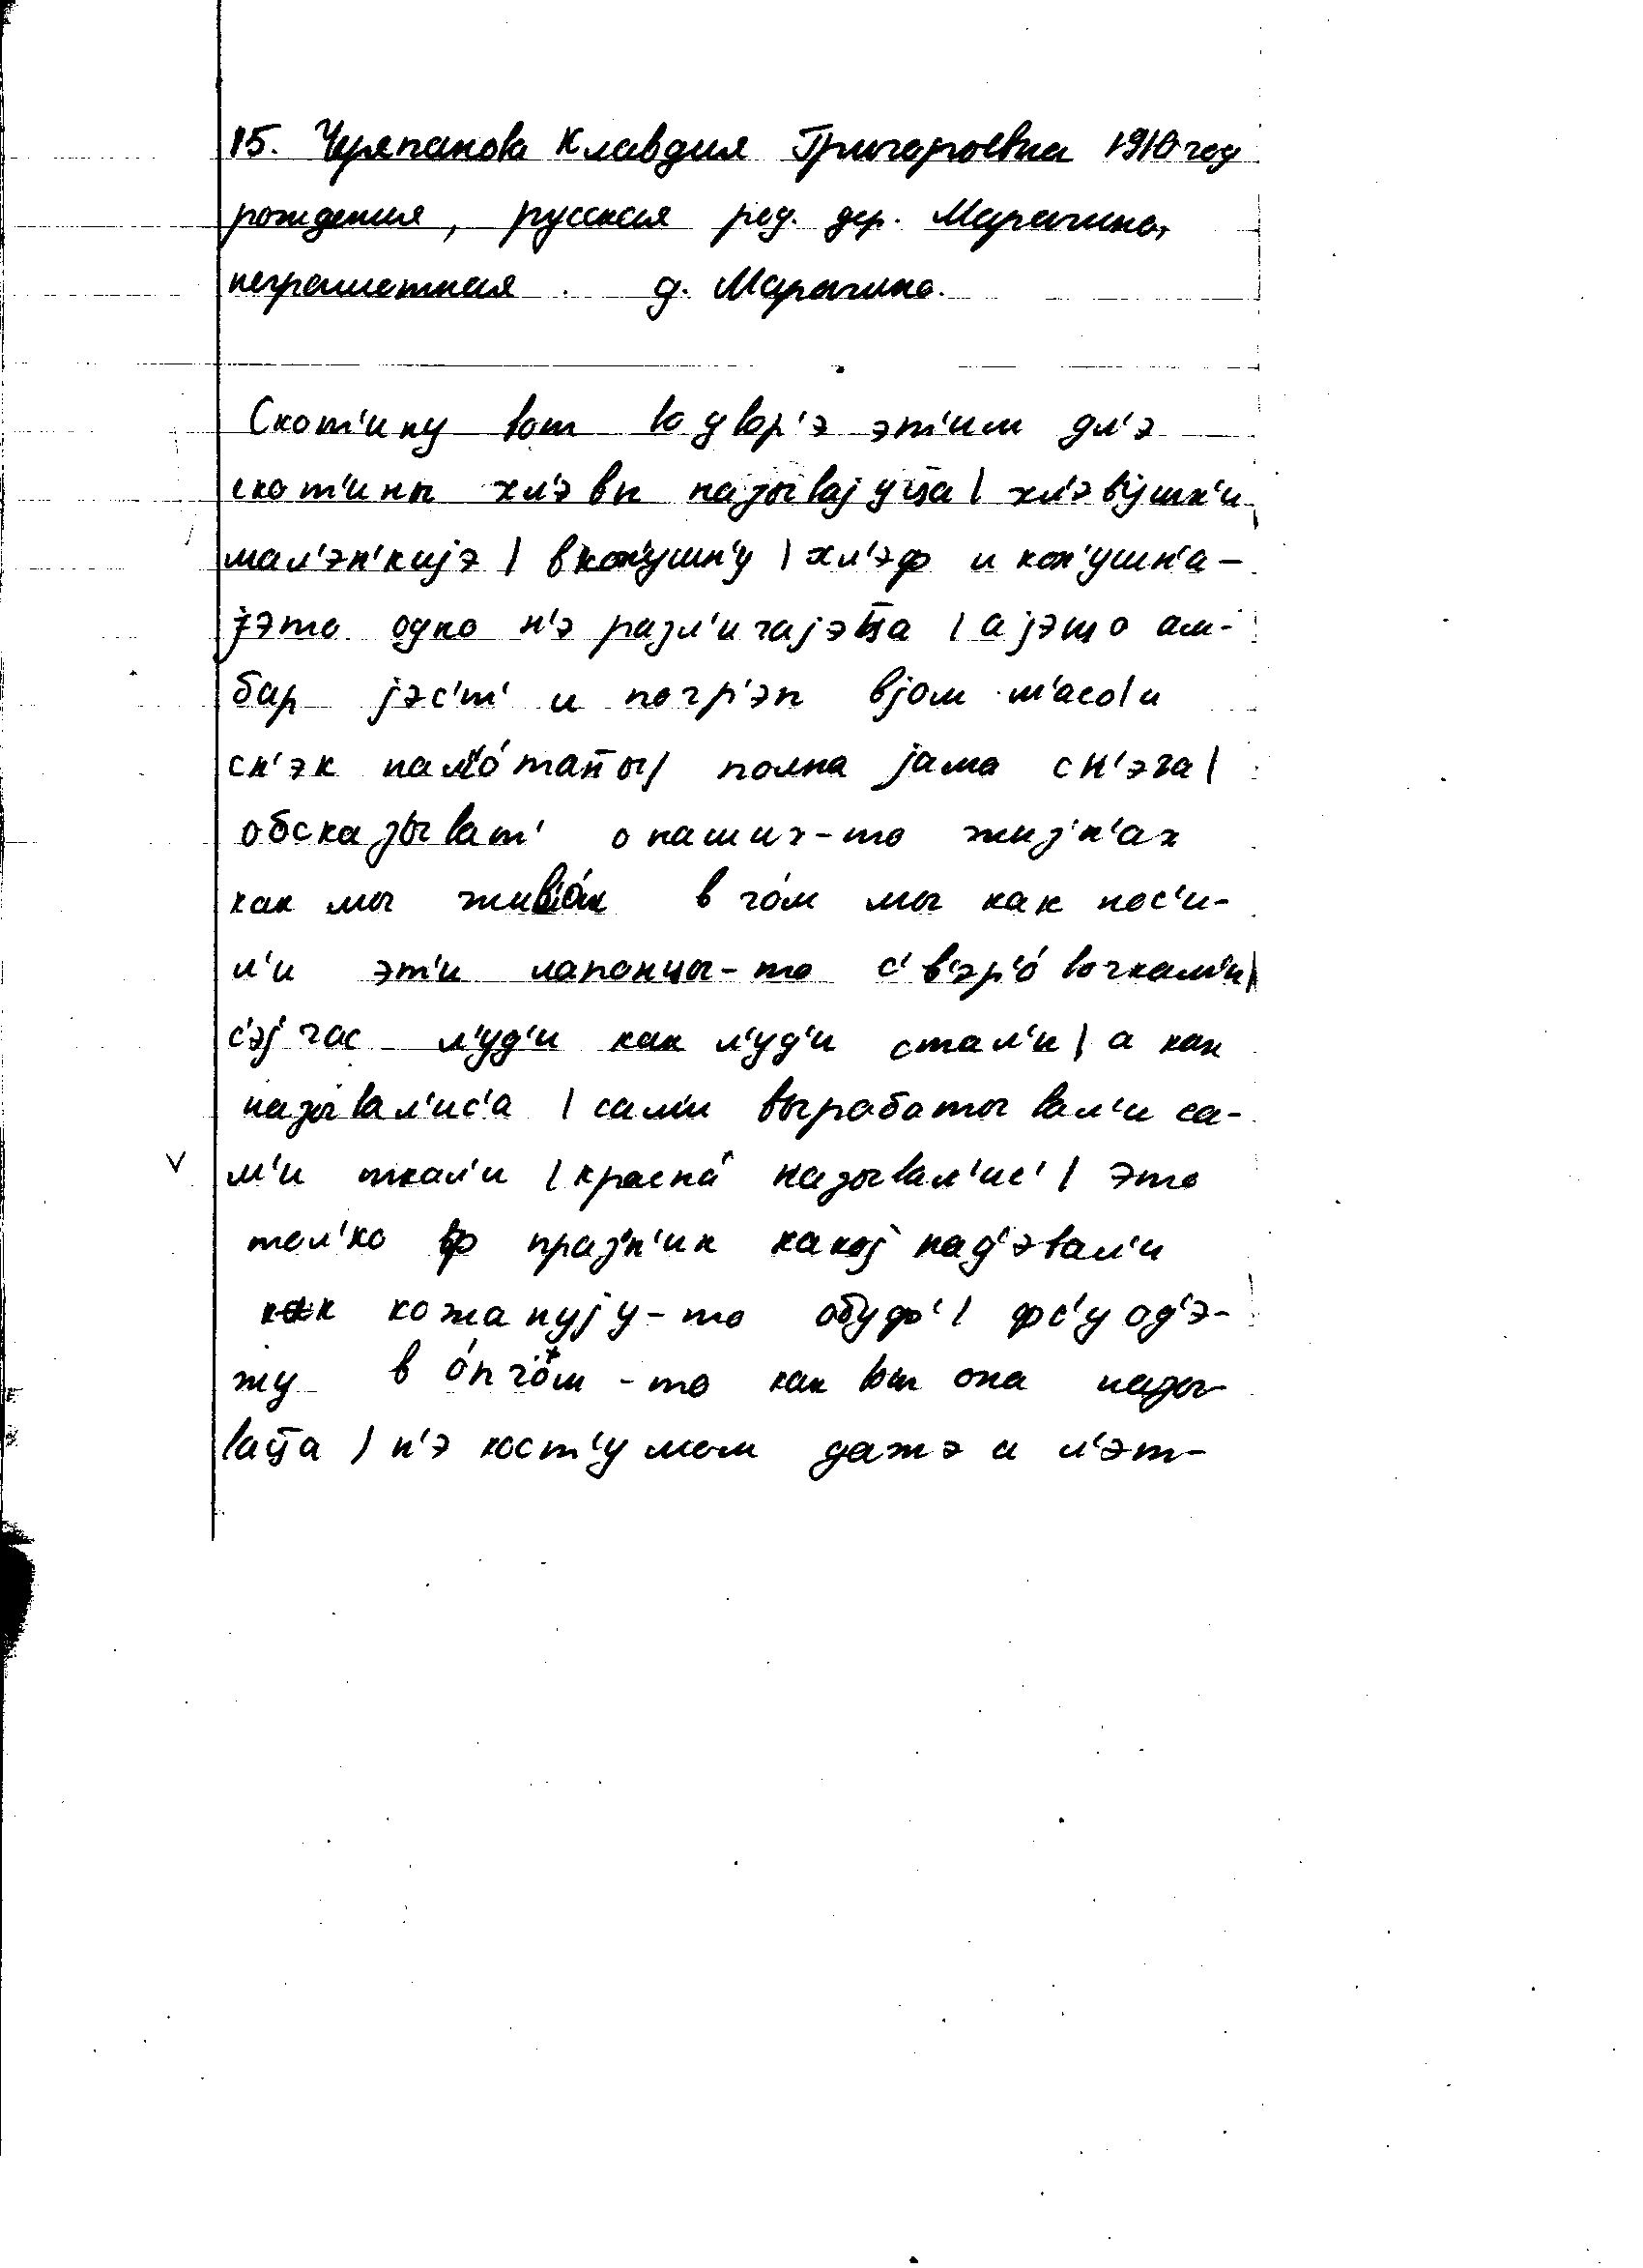 15. Черяпанова Клавдия Григорьевна 1910 год
рождения, русская род. дер. Марачино,
неграмотная. д. Марачино.
Скот'ину вот во двор'э эт'им дл'э
скот'ины хл'эвы называјуц̅а | хл'эв'ушк'и
мал'эн'кијэ | в кон'ушн'у | хл'эф и кон'ушн'а –
јэто одно н'э разл'ичајэц̅а | а јэшо ам-
бар јэс'т' и погр'эп вјом м'асо | и
сн'эк нам'о́тан̅ы | полна јама сн'эга |
обсказыват' о наших-то жиз'н'ах
как мы жив'о́м в чо́м мы как нос'и-
л'и эт'и лапонцы-то с' в'эр'о́вочкам'и |
с'эјчас л'уд'и как л'уд'и стал'и | а как
называл'ис'а | сам'и вырабатывал'и са-
м'и ткал'и | красна́ называл'ис' | это
тол'ко ф праз'н'ик какој над'эвал'и
как кожанују-то обуф' | фс'у од'э-
жу в о́пчо́м-то как вот она назы-
вац̅а | н'э кост'умом дажэ а л'эт-